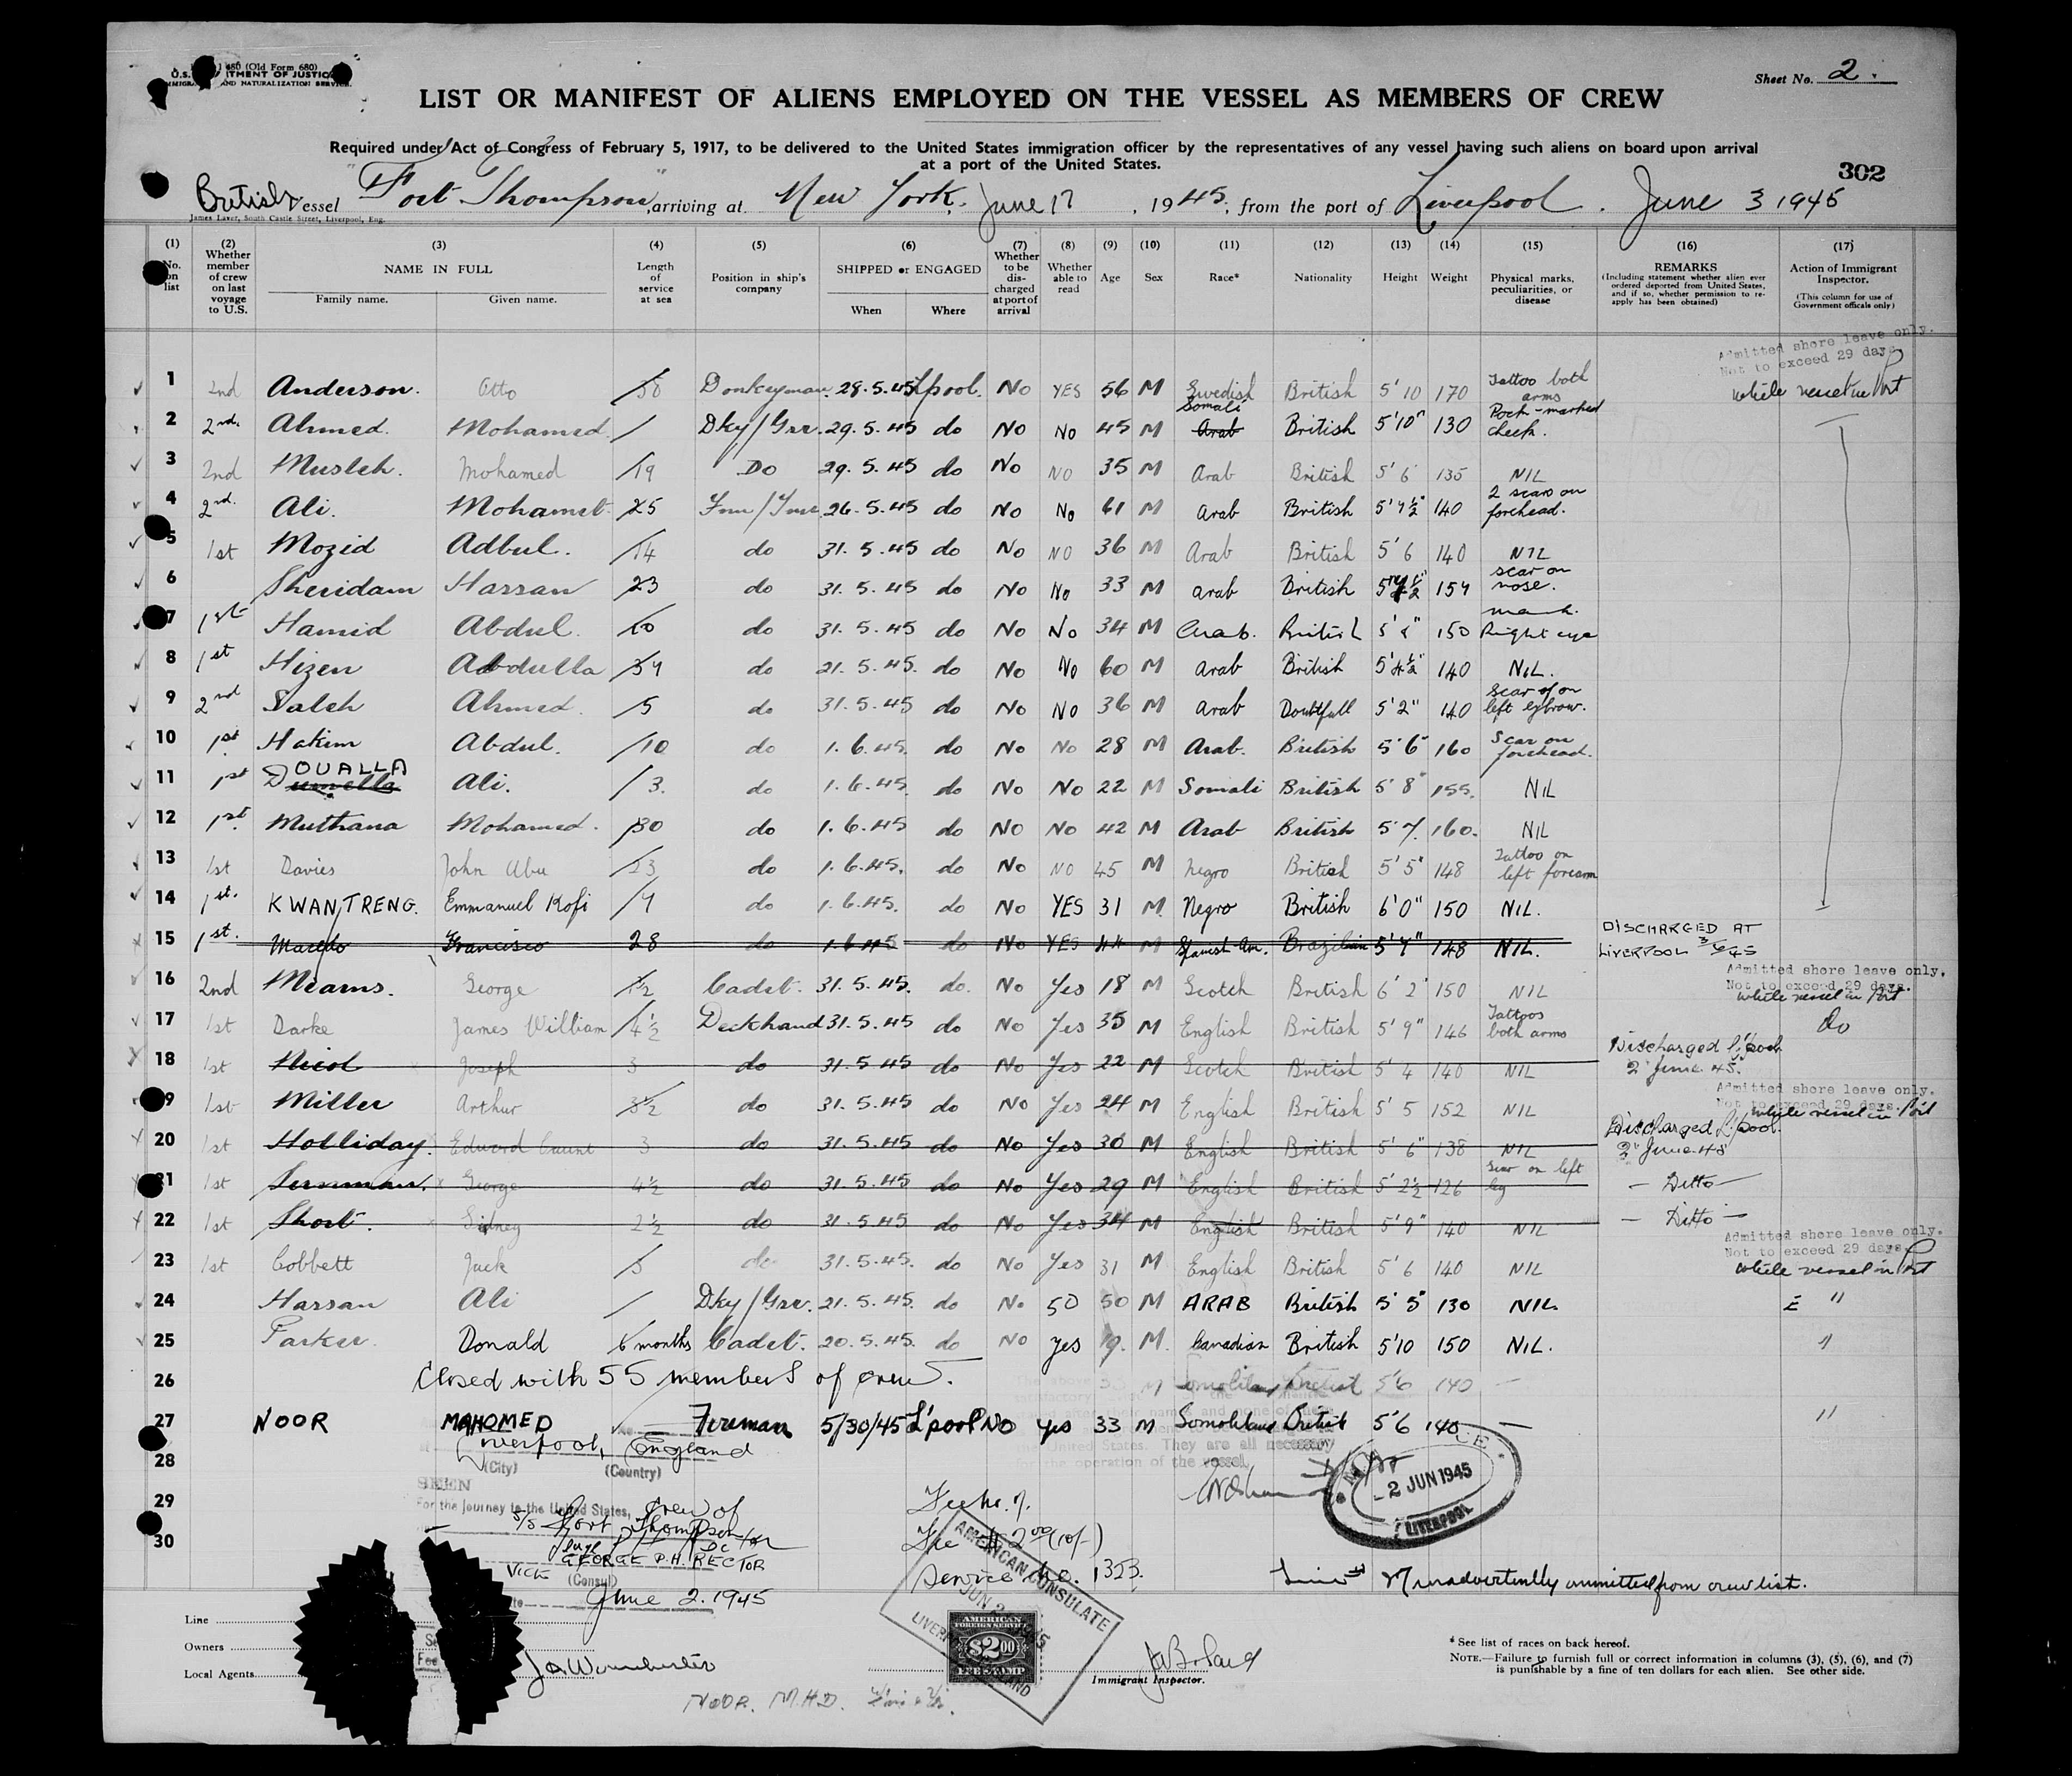 480 (Old Form 680)
U.S. TMENT OF JUSTICE
AND NATURALIZATION SERVICE.
Sheet No. 2.
LIST OR MANIFEST OF ALIENS EMPLOYED ON THE VESSEL AS MEMBERS OF CREW
Required under Act of Congress of February 5, 1917, to be delivered to the United States immigration officer by the representatives of any vessel having such aliens on board upon arrival
at a port of the United States.
302
British Vessel "Fort Thompson", arriving at New York, June 17, 1945, from the port of Liverpool. June 3 1945
James Laver, South Castle Street, Liverpool, Eng.
(1) No. on list (2) Whether member of crew on last voyage to U.S. (3) NAME IN FULL Family name. Given name. (4) Length of service at sea (5) Position in ship's company (6) SHIPPED or ENGAGED When Where (7) Whether to be discharged at port of arrival (8) Whether able to read (9) Age (10) Sex (11) Race* (12) Nationality (13) Height (14) Weight (15) Physical marks, peculiarities, or disease (16) REMARKS (Including statement whether alien ever ordered deported from United States, and if so, whether permission to reapply has been obtained) (17) Action of Immigrant Inspector. (This column for use of Government officals only)
Admitted shore leave only.
Not to exceed 29 days
while vessel in Port
1 2nd Anderson. Otto 38 Donkeyman. 28.5.45 L'pool. No YES 56 M Swedish British 5'10 170 Tattoo both arms
2 2nd. Ahmed. Mohamed. Dky/Grr. 29.5.45 do No No 45 M Somali Arab British 5'10" 130 Pock-marked cheek.
3 2nd Musleh. Mohamed 19 Do 29.5.45 do No NO 35 M Arab British 5'6 135 NIL
4 2nd. Ali. Mohamet. 25 26.5.45 do No No 61 M Arab British 5'7½" 140 2 scars on forehead.
5 1st Mozid Adbul. 14 do 31.5.45 do No NO 36 M Arab British 5'6 140 NIL
6 Sheridam Hassan 23 do 31.5.45 do No No 33 M Arab British 154 scar on nose.
7 1st Hamid Abdul. 10 do 31.5.45 do No No 34 M Arab. British 150 mark. Right eye
8 1st Hizen Abdulla 34 do 21.5.45. do No No 60 M Arab British 5'4½" 140 NIL.
9 2nd Saleh Ahmed. 5 do 31.5.45 do No No 36 M Arab Doubtfull 5'2" 140 Scar of on left eybrow.
10 1st Hakim Abdul. 10 do 1.6.45. do No No 28 M Arab. British 5'6" 160 Scar on forehead.
11 1st DOUALLA Ali. 3. do 1.6.45. do No No 22 M Somali British 5'8" 155. NIL
12 1st. Muthana Mohamed. 30 do 1.6.45 do No No 42 M Arab British 5'7. 160. NIL
13 1st Davies John Abu 23 do 1.6.45. do No NO 45 M Negro British 5'5" 148 Tattoo on left forearm
14 1st. KWANTRENG. Emmanuel Kofi 4 do 1.6.45. do No YES 31 M. Negro British 6'0" 150 NIL.
15 1st. Macedo Francisco 28 do 1.6.45 do No YES 44 M Spanish Am. Brazilian 5'7" 148 NIL. DISCHARGED AT LIVERPOOL 3/6/45
Admitted shore leave only.
Not to exceed 29 days.
while vessel in Port
16 2nd Mearns. George 1½ Cadet. 31.5.45. do. No Yes 18 M Scotch British 6'2" 150 NIL
17 1st Darke James William 4½ Deckhand 31.5.45 do No Yes 35 M English British 5'9" 146 Tattoos both arms do
18 1st Nicol Joseph 3 do 31.5.45 do No Yes 22 M Scotch British 5'4 140 NIL Discharged L'pool 2 June 45.
Admitted shore leave only.
Not to exceed 29 days.
while vessel in Port
19 1st Miller Arthur 3½ do 31.5.45 do No Yes 24 M English British 5'5 152 NIL
20 1st Holliday. Edward 3 do 31.5.45 do No Yes 30 M English British 5'6" 138 NIL Discharged L'pool. 2 June 45
21 1st George 4½ do 31.5.45 do No Yes 29 M English British 5'2½ 126 Scar on left leg — Ditto —
22 1st Short. Sidney 2½ do 31.5.45 do No Yes 34 M English British 5'9" 140 NIL — Ditto —
Admitted shore leave only.
Not to exceed 29 days.
while vessel in Port
23 1st Cobbett Jack 5 do 31.5.45. do No Yes 31 M English British 5'6 140 NIL
24 Hassan Ali Dky/Grr. 21.5.45. do No 50 50 M ARAB British 5'5" 130 NIL "
25 Parker. Donald 6 months Cadet. 20.5.45. do NO yes 19. M. Canadian British 5'10 150 NIL. "
26 Closed with 55 members of crew. 33 M Somoliland British 5'6 140 —
27 NOOR MAHOMED Fireman 5/30/45 L'pool No yes 33 M Somoliland British 5'6 140 — "
satisfactory
after their names and none of
the United States. They are all necessary
for the operation of the vessel.
Liverpool, England
(City) (Country)
28
SEEN
For the journey to the United States, Crew of
S/S Fort Thompson
29
30
GEORGE P.H. RECTOR
VICE (Consul)
June 2. 1945
Fee $2.00 (10/-)
Service No. 1353.
2 JUN 1945
LIVERPOOL
Line # 27 inadvertently ommitted from crew list.
AMERICAN CONSULATE
JUN 2 1945
LIVERPOOL ENGLAND
AMERICAN
FOREIGN SERVICE
$2.00
FEE STAMP
Line
Owners
Local Agents
Immigrant Inspector.
* See list of races on back hereof.
NOTE.—Failure to furnish full or correct information in columns (3), (5), (6), and (7)
is punishable by a fine of ten dollars for each alien. See other side.
NOOR. M.H.D.